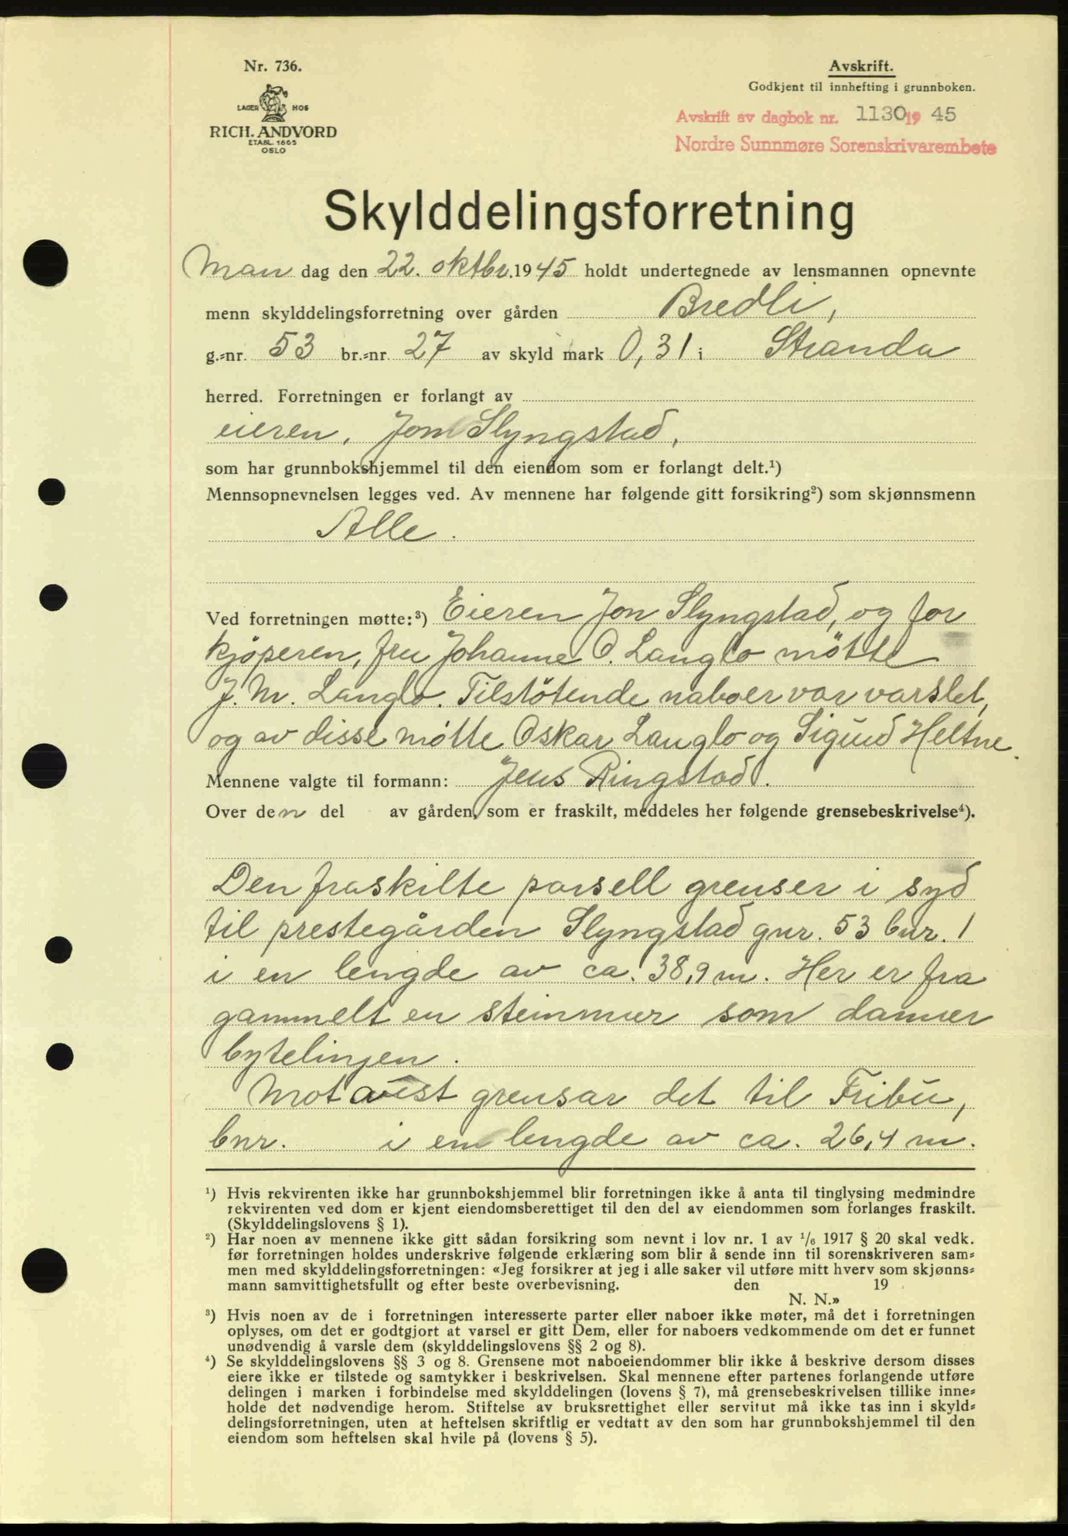 Nr. 736.
LAGER HOS
RICH. ANDVORD
ETABL. 1865
OSLO
Avskrift.
Godkjent til innhefting i grunnboken.
Avskrift av dagbok nr. 1130 19 45
Nordre Sunnmøre Sorenskrivarembete
Skylddelingsforretning
Man dag den 22. oktbr. 1945 holdt undertegnede av lensmannen opnevnte
menn skylddelingsforretning over gården Bredli,
g.-nr. 53 br.-nr. 27 av skyld mark 0,31 i Stranda
herred. Forretningen er forlangt av
eieren, Jon Slyngstad,
som har grunnbokshjemmel til den eiendom som er forlangt delt.¹)
Mennsopnevnelsen legges ved. Av mennene har følgende gitt forsikring²) som skjønnsmenn
Alle.
Ved forretningen møtte:³) Eieren Jon Slyngstad, og for
kjøperen, fru Johanne O. Langlo møtte
J. M. Langlo. Tilstøtende naboer var varslet,
og av disse møtte Oskar Langlo og Sigurd Heltne.
Mennene valgte til formann: Jens Ringstad.
Over den del av gården, som er fraskilt, meddeles her følgende grensebeskrivelse⁴).
Den fraskilte parsell grenser i syd
til prestegården Slyngstad gnr. 53 bnr. 1
i en lengde av ca. 38,9 m. Her er fra
gammelt en steinmur som danner
bytelinjen.
Mot aust grensar det til Fribu,
bnr. i en lengde av ca. 26,4 m.
¹) Hvis rekvirenten ikke har grunnbokshjemmel blir forretningen ikke å anta til tinglysing medmindre
rekvirenten ved dom er kjent eiendomsberettiget til den del av eiendommen som forlanges fraskilt.
(Skylddelingslovens § 1).
²) Har noen av mennene ikke gitt sådan forsikring som nevnt i lov nr. 1 av ¹/₆ 1917 § 20 skal vedk.
før forretningen holdes underskrive følgende erklæring som blir å sende inn til sorenskriveren sam-
men med skylddelingsforretningen: «Jeg forsikrer at jeg i alle saker vil utføre mitt hverv som skjønns-
mann samvittighetsfullt og efter beste overbevisning. den 19
N. N.»
³) Hvis noen av de i forretningen interesserte parter eller naboer ikke møter, må det i forretningen
oplyses, om det er godtgjort at varsel er gitt Dem, eller for naboers vedkommende om det er funnet
unødvendig å varsle dem (skylddelingslovens §§ 2 og 8).
⁴) Se skylddelingslovens §§ 3 og 8. Grensene mot naboeiendommer blir ikke å beskrive dersom disses
eiere ikke er tilstede og samtykker i beskrivelsen. Skal mennene efter partenes forlangende utføre
delingen i marken i forbindelse med skylddelingen (lovens § 7), må grensebeskrivelsen tillike inne-
holde det nødvendige herom. Stiftelse av bruksrettighet eller servitut må ikke tas inn i skyld-
delingsforretningen, uten at heftelsen skriftlig er vedtatt av den som har grunnbokshjemmel til den
eiendom som heftelsen skal hvile på (lovens § 5).